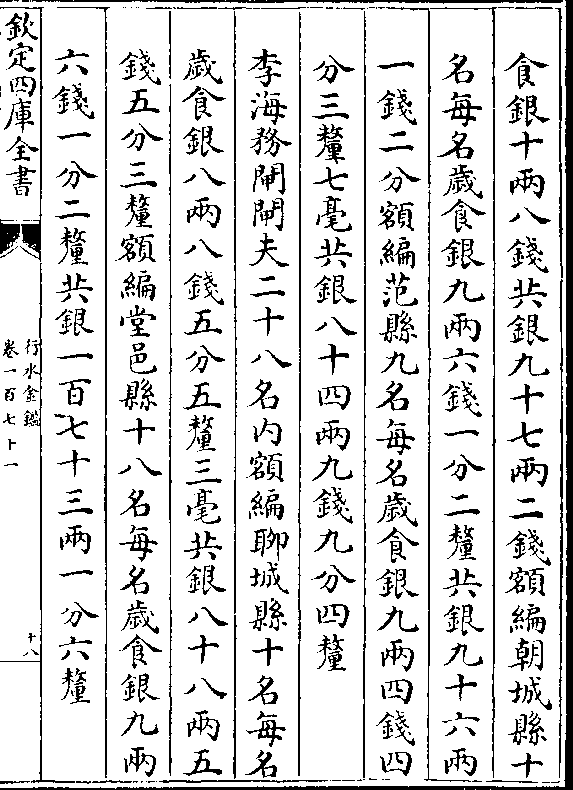 食銀十兩八錢共銀九十七兩二錢額編朝城縣十
名每名歲食銀九兩六錢一分二釐共銀九十六兩
一錢二分額編范縣九名每名歲食銀九兩四錢四
分三釐七毫共銀八十四兩九錢九分四釐
李海務閘閘夫二十八名内額編聊城縣十名每名
歲食銀八兩八錢五分五釐三毫共銀八十八兩五
錢五分三釐額編堂邑縣十八名每名歲食銀九兩
六錢一分二釐共銀一百七十三兩一分六釐
欽定四庫全書
行水金鑑
卷一百七十一
十八